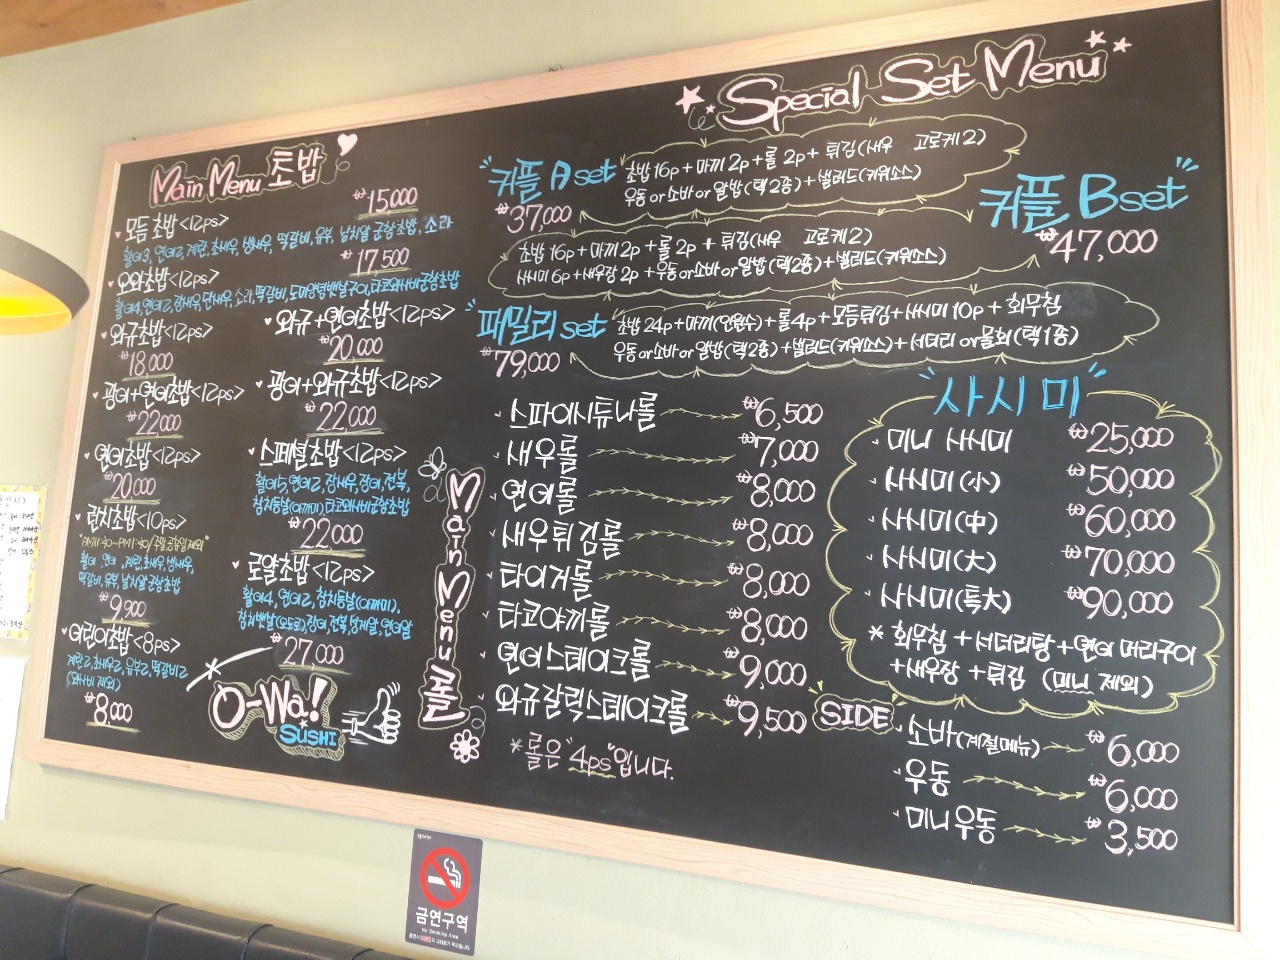 Main Menu 초밥
모듬 초밥<12ps>
₩15,000
활어3, 연어2, 계란, 초새우, 생새우, 떡갈비, 유부, 날치알 군함초밥, 소라
오와초밥<12ps>
₩17,500
활어4, 연어2, 장새우, 단새우, 소라, 떡갈비, 도미양념뱃살구이, 타코와사비군함초밥
와규초밥<12ps>
₩18,000
와규+연어초밥<12ps>
₩20,000
광어+연어초밥<12ps>
₩22,000
광어+와규초밥<12ps>
₩22,000
연어초밥<12ps>
₩20,000
스페셜초밥<12ps>
활어5, 연어2, 장새우, 장어, 전복,
참치등살(아까미), 타코와사비군함초밥
₩22,000
런치초밥<10ps>
"AM11:30~PM1:30/주말,공휴일제외"
활어, 연어, 계란, 초새우, 생새우,
떡갈비, 유부, 날치알 군함초밥
₩9,900
로얄초밥<12ps>
활어4, 연어2, 참치등살(아까미),
참치뱃살(오도로), 장어, 전복, 성게알, 연어알
₩27,000
어린이초밥<8ps>
계란2, 초새우2, 유부2, 떡갈비2
(와사비 제외)
₩8,000
O-Wa!
SUSHI
Special Set Menu
커플 A set
₩37,000
초밥 16p+마끼 2p+롤 2p+튀김(새우 고로케2)
우동 or 소바 or 알밥(택2종)+샐러드(키위소스)
커플 B set
₩47,000
초밥 16p+마끼 2p+롤 2p+튀김(새우 고로케2)
사시미 6p+새우장 2p+우동 or 소바 or 알밥(택2종)+샐러드(키위소스)
패밀리 set
₩79,000
초밥 24p+마끼(인원수)+롤4p+모듬튀김+사시미 10p+회무침
우동 or 소바 or 알밥(택2종)+샐러드(키위소스)+서더리 or 물회(택1종)
Main Menu 롤
스파이시튜나롤 ₩6,500
새우롤 ₩7,000
연어롤 ₩8,000
새우튀김롤 ₩8,000
타이거롤 ₩8,000
타코야끼롤 ₩8,000
연어스테이크롤 ₩9,000
와규갈릭스테이크롤 ₩9,500
*롤은 "4ps"입니다.
"사시미"
미니 사시미 ₩25,000
사시미(小) ₩50,000
사시미(中) ₩60,000
사시미(大) ₩70,000
사시미(특大) ₩90,000
* 회무침+서더리탕+연어 머리구이
+새우장+튀김 (미니 제외)
SIDE
소바(계절메뉴) ₩6,000
우동 ₩6,000
미니우동 ₩3,500
금연구역
No Smoking Area